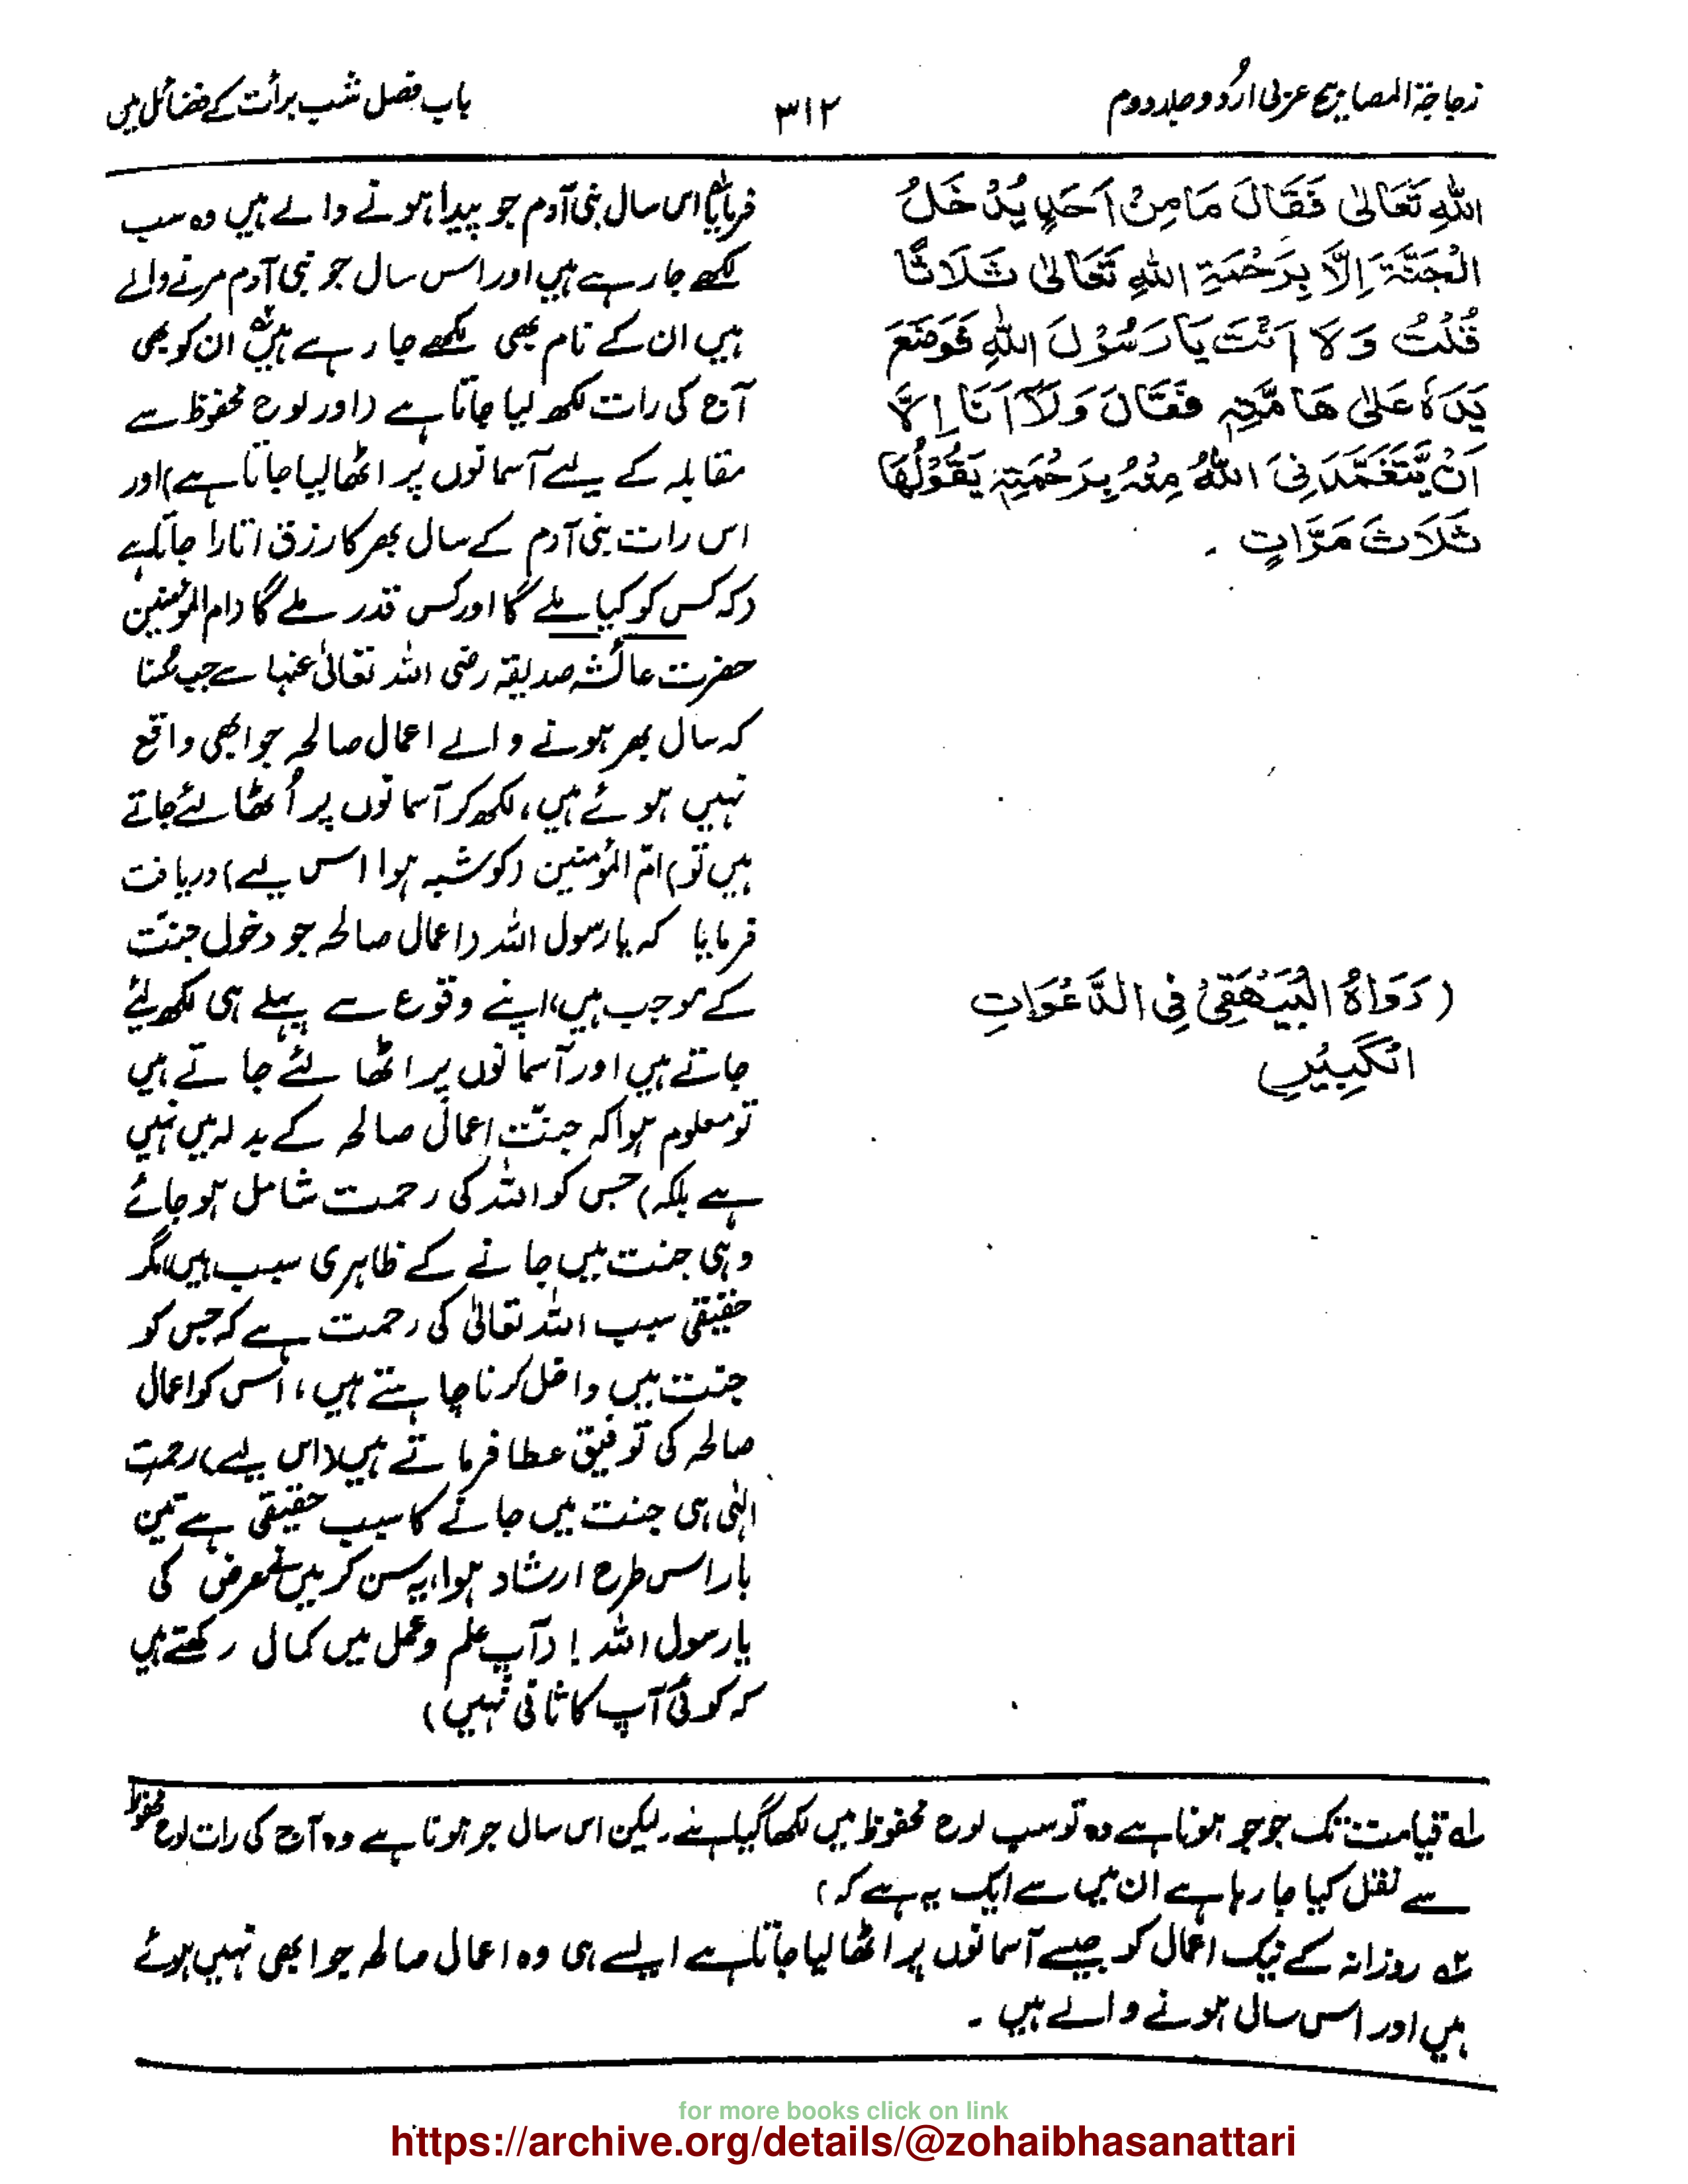 زجاجۃ المصابیح عربی اردو جلد دوم
۳۱۲
باب فضل شب برأت کے فضائل میں
اللہِ تَعَالٰی فَقَالَ مَا مِنْ اَحَدٍ یُدْخَلُ
الْجَنَّۃَ اِلَّا بِرَحْمَۃِ اللہِ تَعَالٰی ثَلَاثًا
قُلْتُ وَلَا اَنْتَ یَا رَسُوْلَ اللہِ فَوَضَعَ
یَدَہٗ عَلٰی ھَامَّتِہٖ فَقَالَ وَلَا اَنَا اِلَّا
اَنْ یَّتَغَمَّدَنِیَ اللہُ مِنْہُ بِرَحْمَتِہٖ یَقُوْلُھَا
ثَلَاثَ مَرَّاتٍ ۔
(رَوَاہُ الْبَیْھَقِیُّ فِی الدَّعَوَاتِ
الْکَبِیْرِ
فرمایا اس سال بنی آدم جو پیدا ہونے والے ہیں وہ سب
لکھے جا رہے ہیں اور اس سال جو بنی آدم مرنے والے
ہیں ان کے نام بھی لکھے جا رہے ہیں ان کو بھی
آج کی رات لکھ لیا جاتا ہے (اور لوح محفوظ سے
مقابلہ کے لیے آسمانوں پر اٹھا لیا جاتا ہے) اور
اس رات بنی آدم کے سال بھر کا رزق اتارا جاتا ہے
(کہ کس کو کیا ملے گا اور کس قدر ملے گا (ام المؤمنین
حضرت عائشہ صدیقہ رضی اللہ تعالیٰ عنہا نے جب سُنا
کہ سال بھر ہونے والے اعمال صالحہ جو ابھی واقع
نہیں ہوئے ہیں، لکھ کر آسمانوں پر اُٹھا لئے جاتے
ہیں تو) امّ المؤمنین (کو شبہ ہوا اس لیے) دریافت
فرمایا کہ یا رسول اللہ (اعمال صالحہ جو دخول جنّت
کے موجب ہیں، اپنے وقوع سے پہلے ہی لکھ لئے
جاتے ہیں اور آسمانوں پر اٹھا لئے جاتے ہیں
تو معلوم ہوا کہ جنّت اعمال صالحہ کے بدلہ میں نہیں
ہے بلکہ) جس کو اللہ کی رحمت شامل ہو جائے
وہی جنت میں جانے کے ظاہری سبب ہیں مگر
حقیقی سبب اللہ تعالیٰ کی رحمت ہے کہ جس کو
جنّت میں داخل کرنا چاہتے ہیں، اس کو اعمال
صالحہ کی توفیق عطا فرماتے ہیں (اس لیے) رحمتِ
الٰہی ہی جنت میں جانے کا سبب حقیقی ہے تین
بار اس طرح ارشاد ہوا، یہ سن کر میں نے عرض کی
یا رسول اللہ! (آپ علم و عمل میں کمال رکھتے ہیں
کہ کوئی آپ کا ثانی نہیں)
لہ قیامت تک جو جو ہونا ہے وہ تو سب لوح محفوظ میں لکھا گیا ہے۔ لیکن اس سال جو ہوتا ہے وہ آج کی رات لوح محفوظ
سے نقل کیا جا رہا ہے ان میں سے ایک یہ ہے کہ)
۲ہ روزانہ کے نیک اعمال کو جیسے آسمانوں پر اٹھا لیا جاتا ہے ایسے ہی وہ اعمال صالحہ جو ابھی نہیں ہوئے
ہیں اور اس سال ہونے والے ہیں ۔
for more books click on link
https://archive.org/details/@zohaibhasanattari